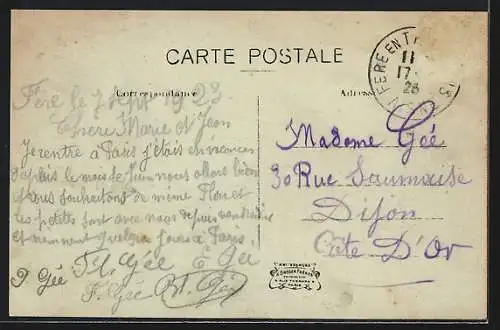 CARTE POSTALE
Correspondance
Adresse
FERE EN T
11
17
23
Fère le 7 Sept 1923
Chère Marie et Jean
Je rentre à Paris j'étais en vacances
depuis le mois de juin nous allons bien
et nous souhaitons de meme Fleur et
les petits sont avec nous depuis
et Paris
G Gée Gée Gée
F. Gée Gée
Madame Gée
30 Rue Saumaise
Dijon
Côte D'Or